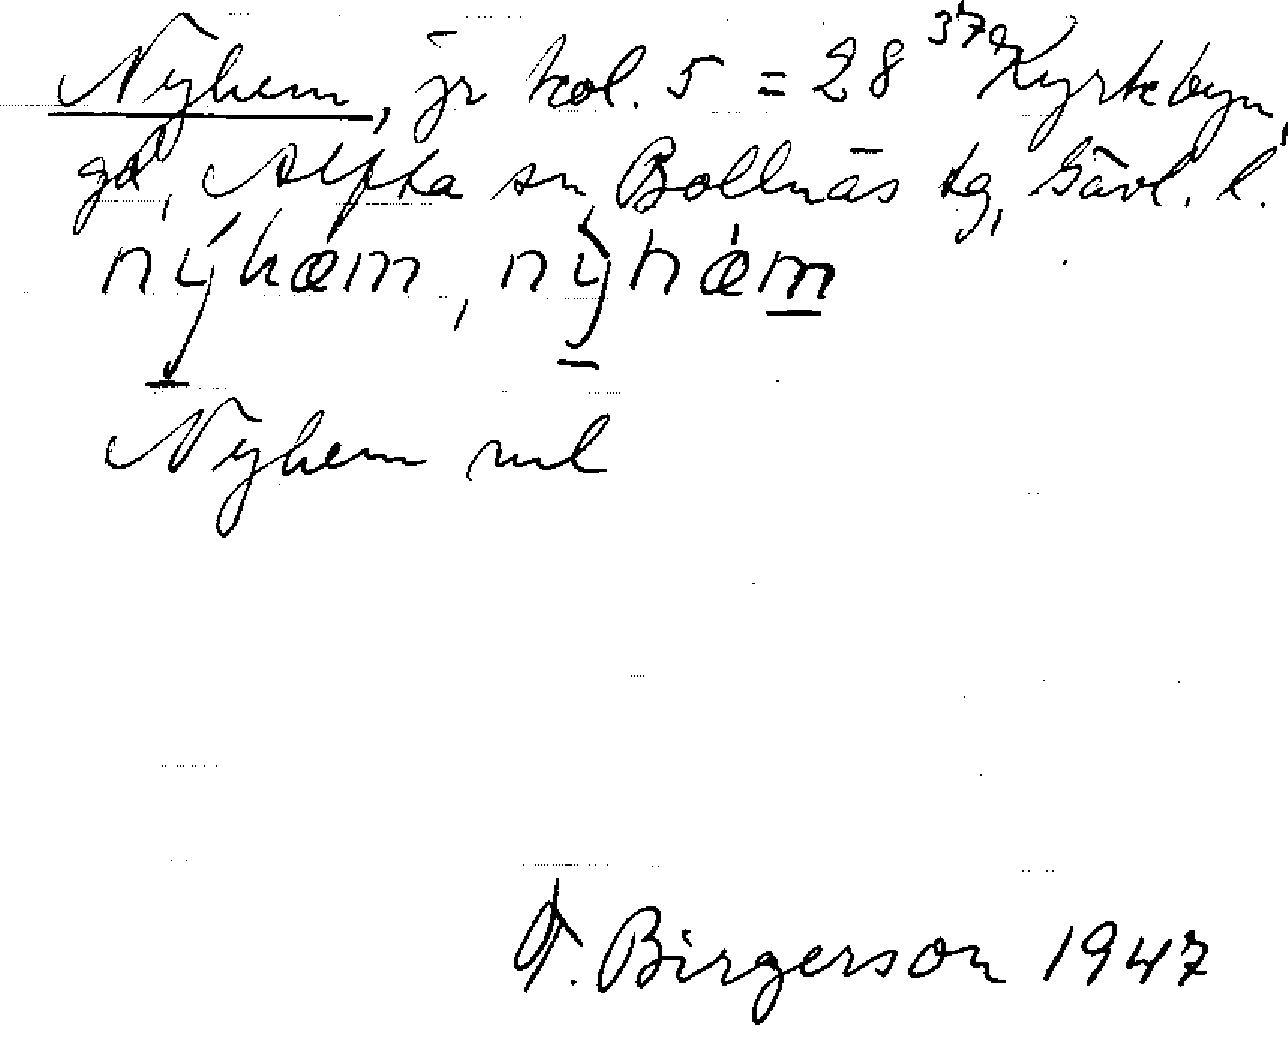 Nyhem, jr kol. 5 = 28³⁷ Kyrkbyn,
gd, Alfta sn, Bollnäs tg, Gävl. l.
nýhæm, nỳhæ̀m
Nyhem ml
Birgerson 1947